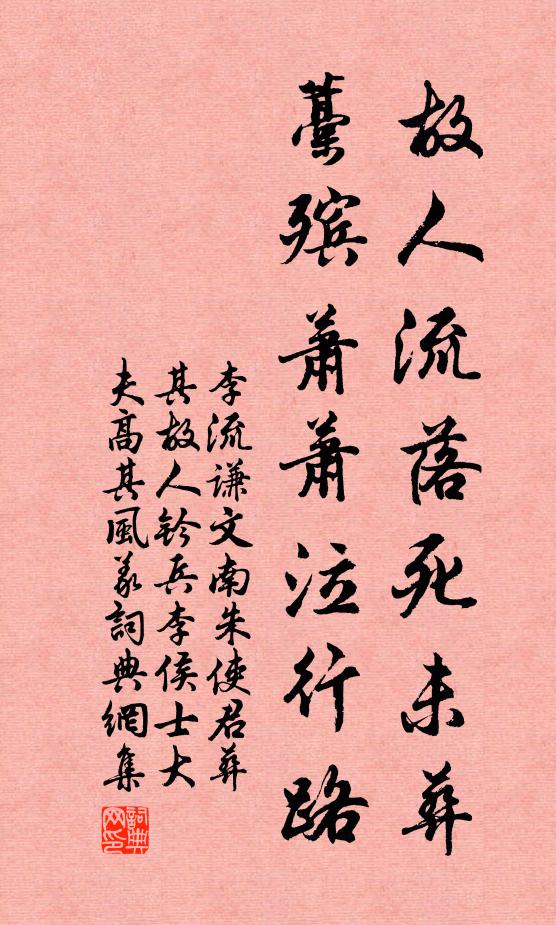 故人流落死未葬
藁殡萧萧泣行路
李流谦文南朱使君葬
其故人钤兵李侯士大
夫高其風義詞典網集
詞典网印